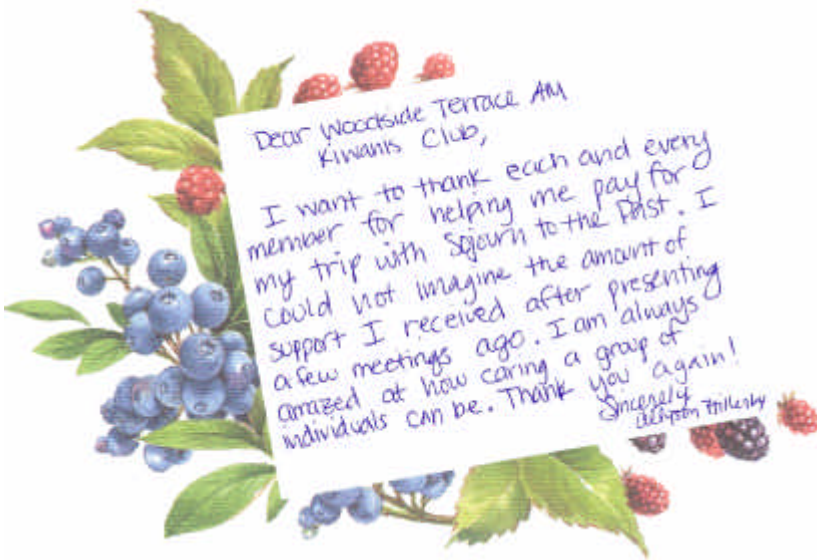 Dear Woodside Terrace AM
Kiwanis Club,
I want to thank each and every
member for helping me pay for
my trip with Sojourn to the Past. I
could not imagine the amount of
support I received after presenting
a few meetings ago. I am always
amazed at how caring a group of
individuals can be. Thank you again!
Sincerely